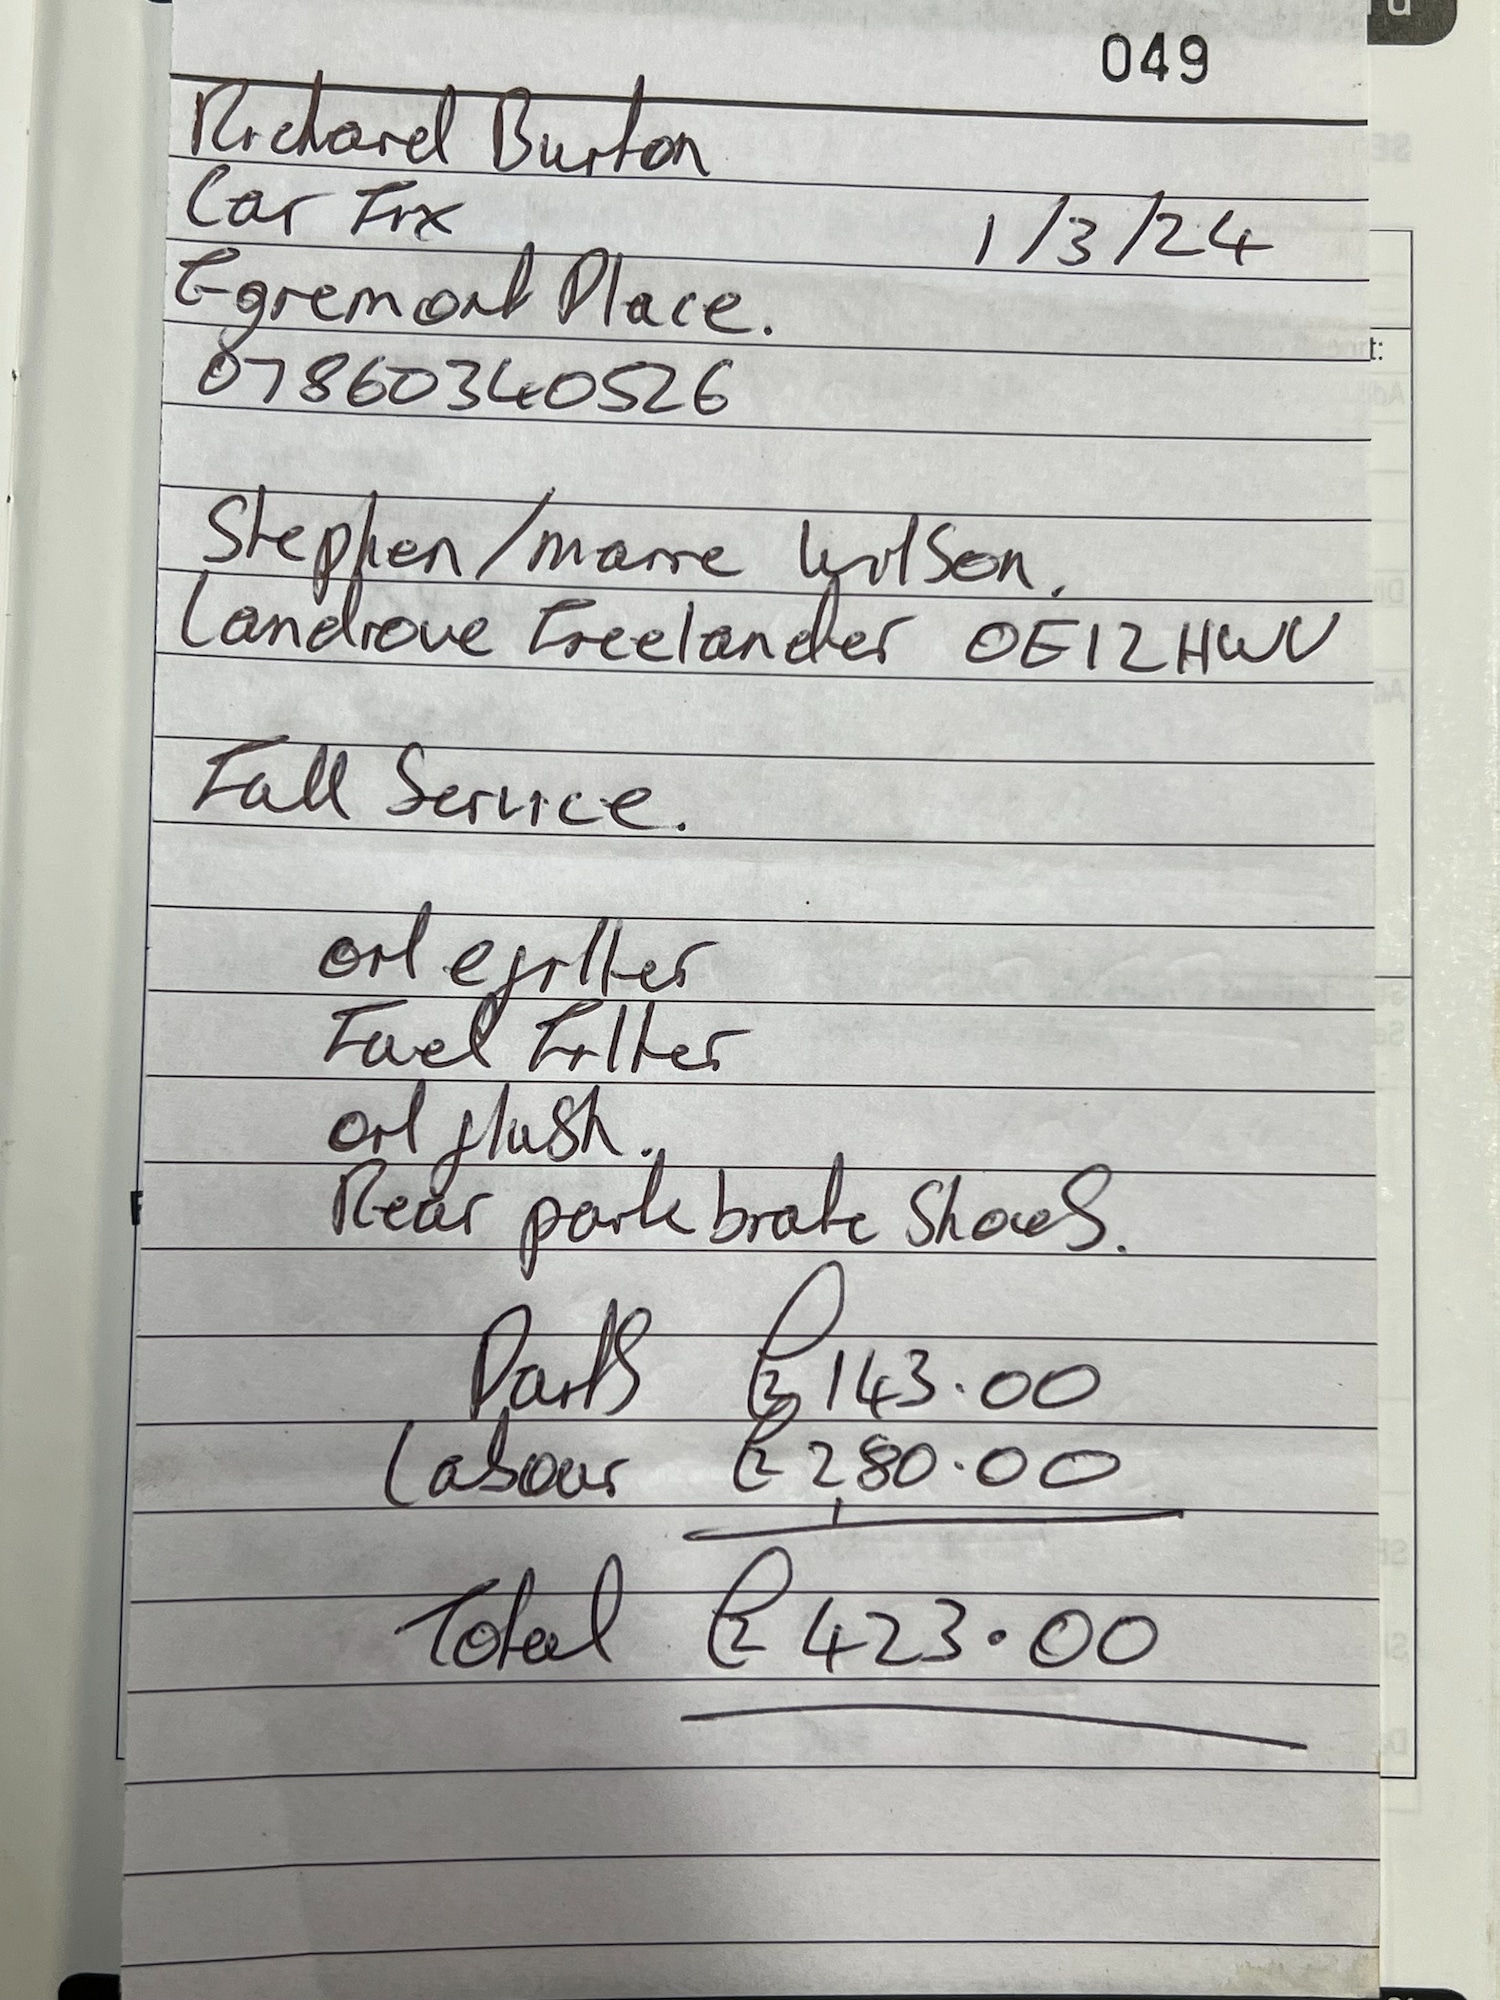 049
Richard Burton
Car Fix
1/3/24
Egremont Place.
07860340526
Stephen/marie Wilson.
Landrove Freelander OE12HWV
Full Service.
oil & filter
Fuel Filter
oil flush.
Rear park brake Shoes.
Parts £143.00
Labour £280.00
Total £423.00